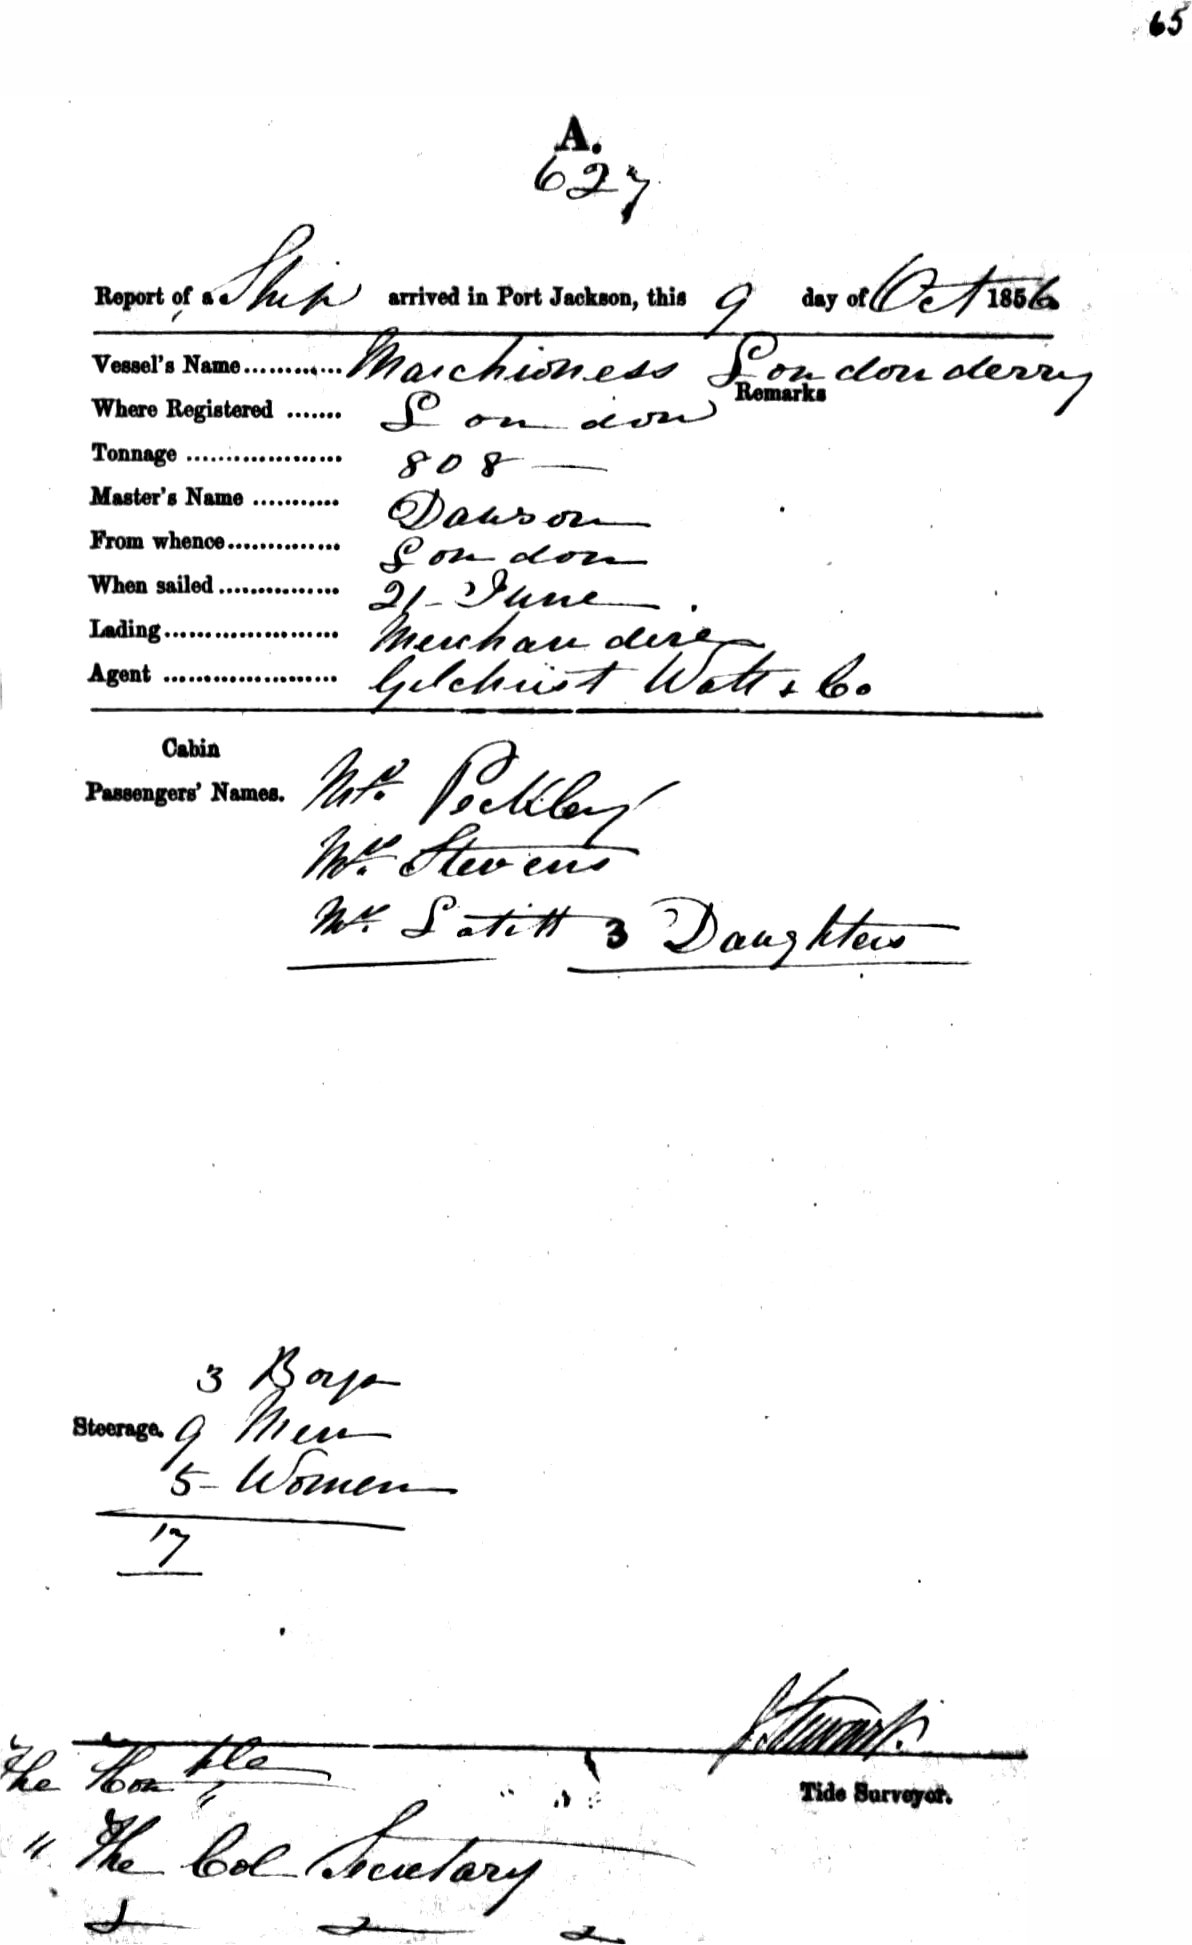 65
A.
627
Report of a Ship arrived in Port Jackson, this 9 day of Oct 1856
Vessel's Name............ Marchioness Londonderry
Remarks
Where Registered ....... London
Tonnage ................... 808
Master's Name ........... Dawson
From whence.............. London
When sailed............... 21 June
Lading...................... Merchandise
Agent ...................... Gilchrist Watt & Co.
Cabin
Passengers' Names. Mr. Peckley
Stevens
Mr. Latitt 3 Daughters
3 Boys
Steerage. 9 Men
5 - Women
17
J. Stewart
The Honble
Tide Surveyor.
" The Col Secretary